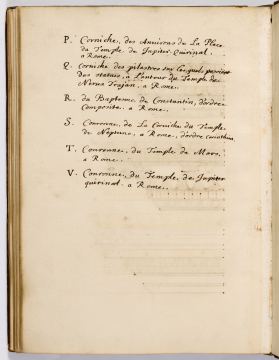 P. Corniche, des Anvirons de La Place
du Temple de Jupiter Quirinal.
a Rome.
Q. Corniche des pilastres sur lesquels
des statues, a L'autour du Temple de
Nerva Trajan, a Rome.
R. du Baptesme de Constantin, d'ordre
Composite a Rome.
S. Couronne, de La Corniche du Temple
de Neptune, a Rome, d'ordre corinthien
T. Couronne, du Temple de Mars,
a Rome.
V. Couronne, du Temple, de Jupiter
quirinal. a Rome.